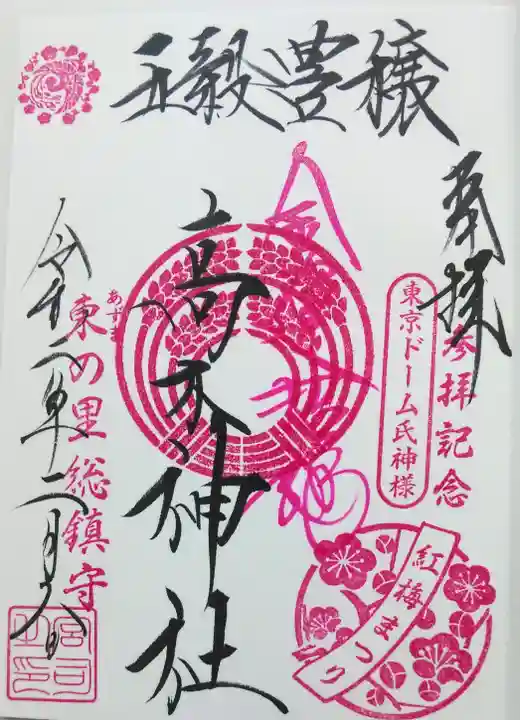 五穀豊穣
奉拝
参拝記念
東京ドーム氏神様
紅梅まつり
高木神社
あずま
東の里総鎮守
令和二年二月 日
宮司之印